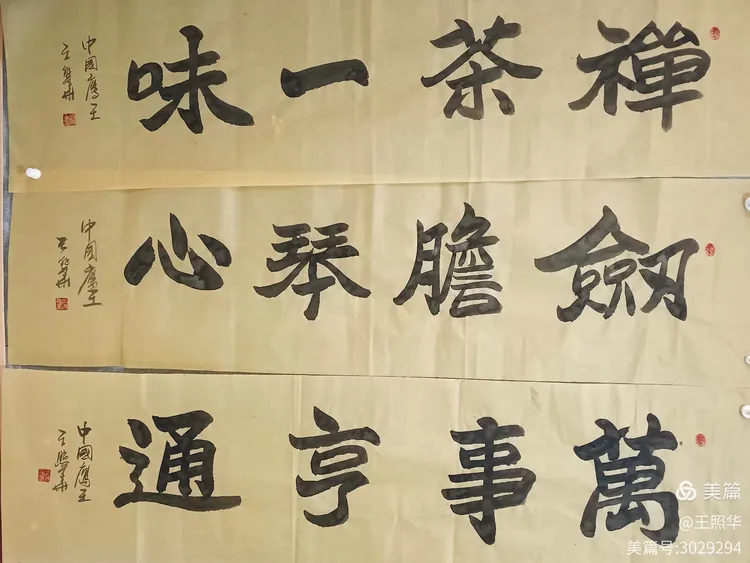 禪茶一味
中國鷹王
王照華
劒膽琴心
中國鷹王
王照華
萬事亨通
中國鷹王
王照華
美篇
@王照华
美篇号:3029294